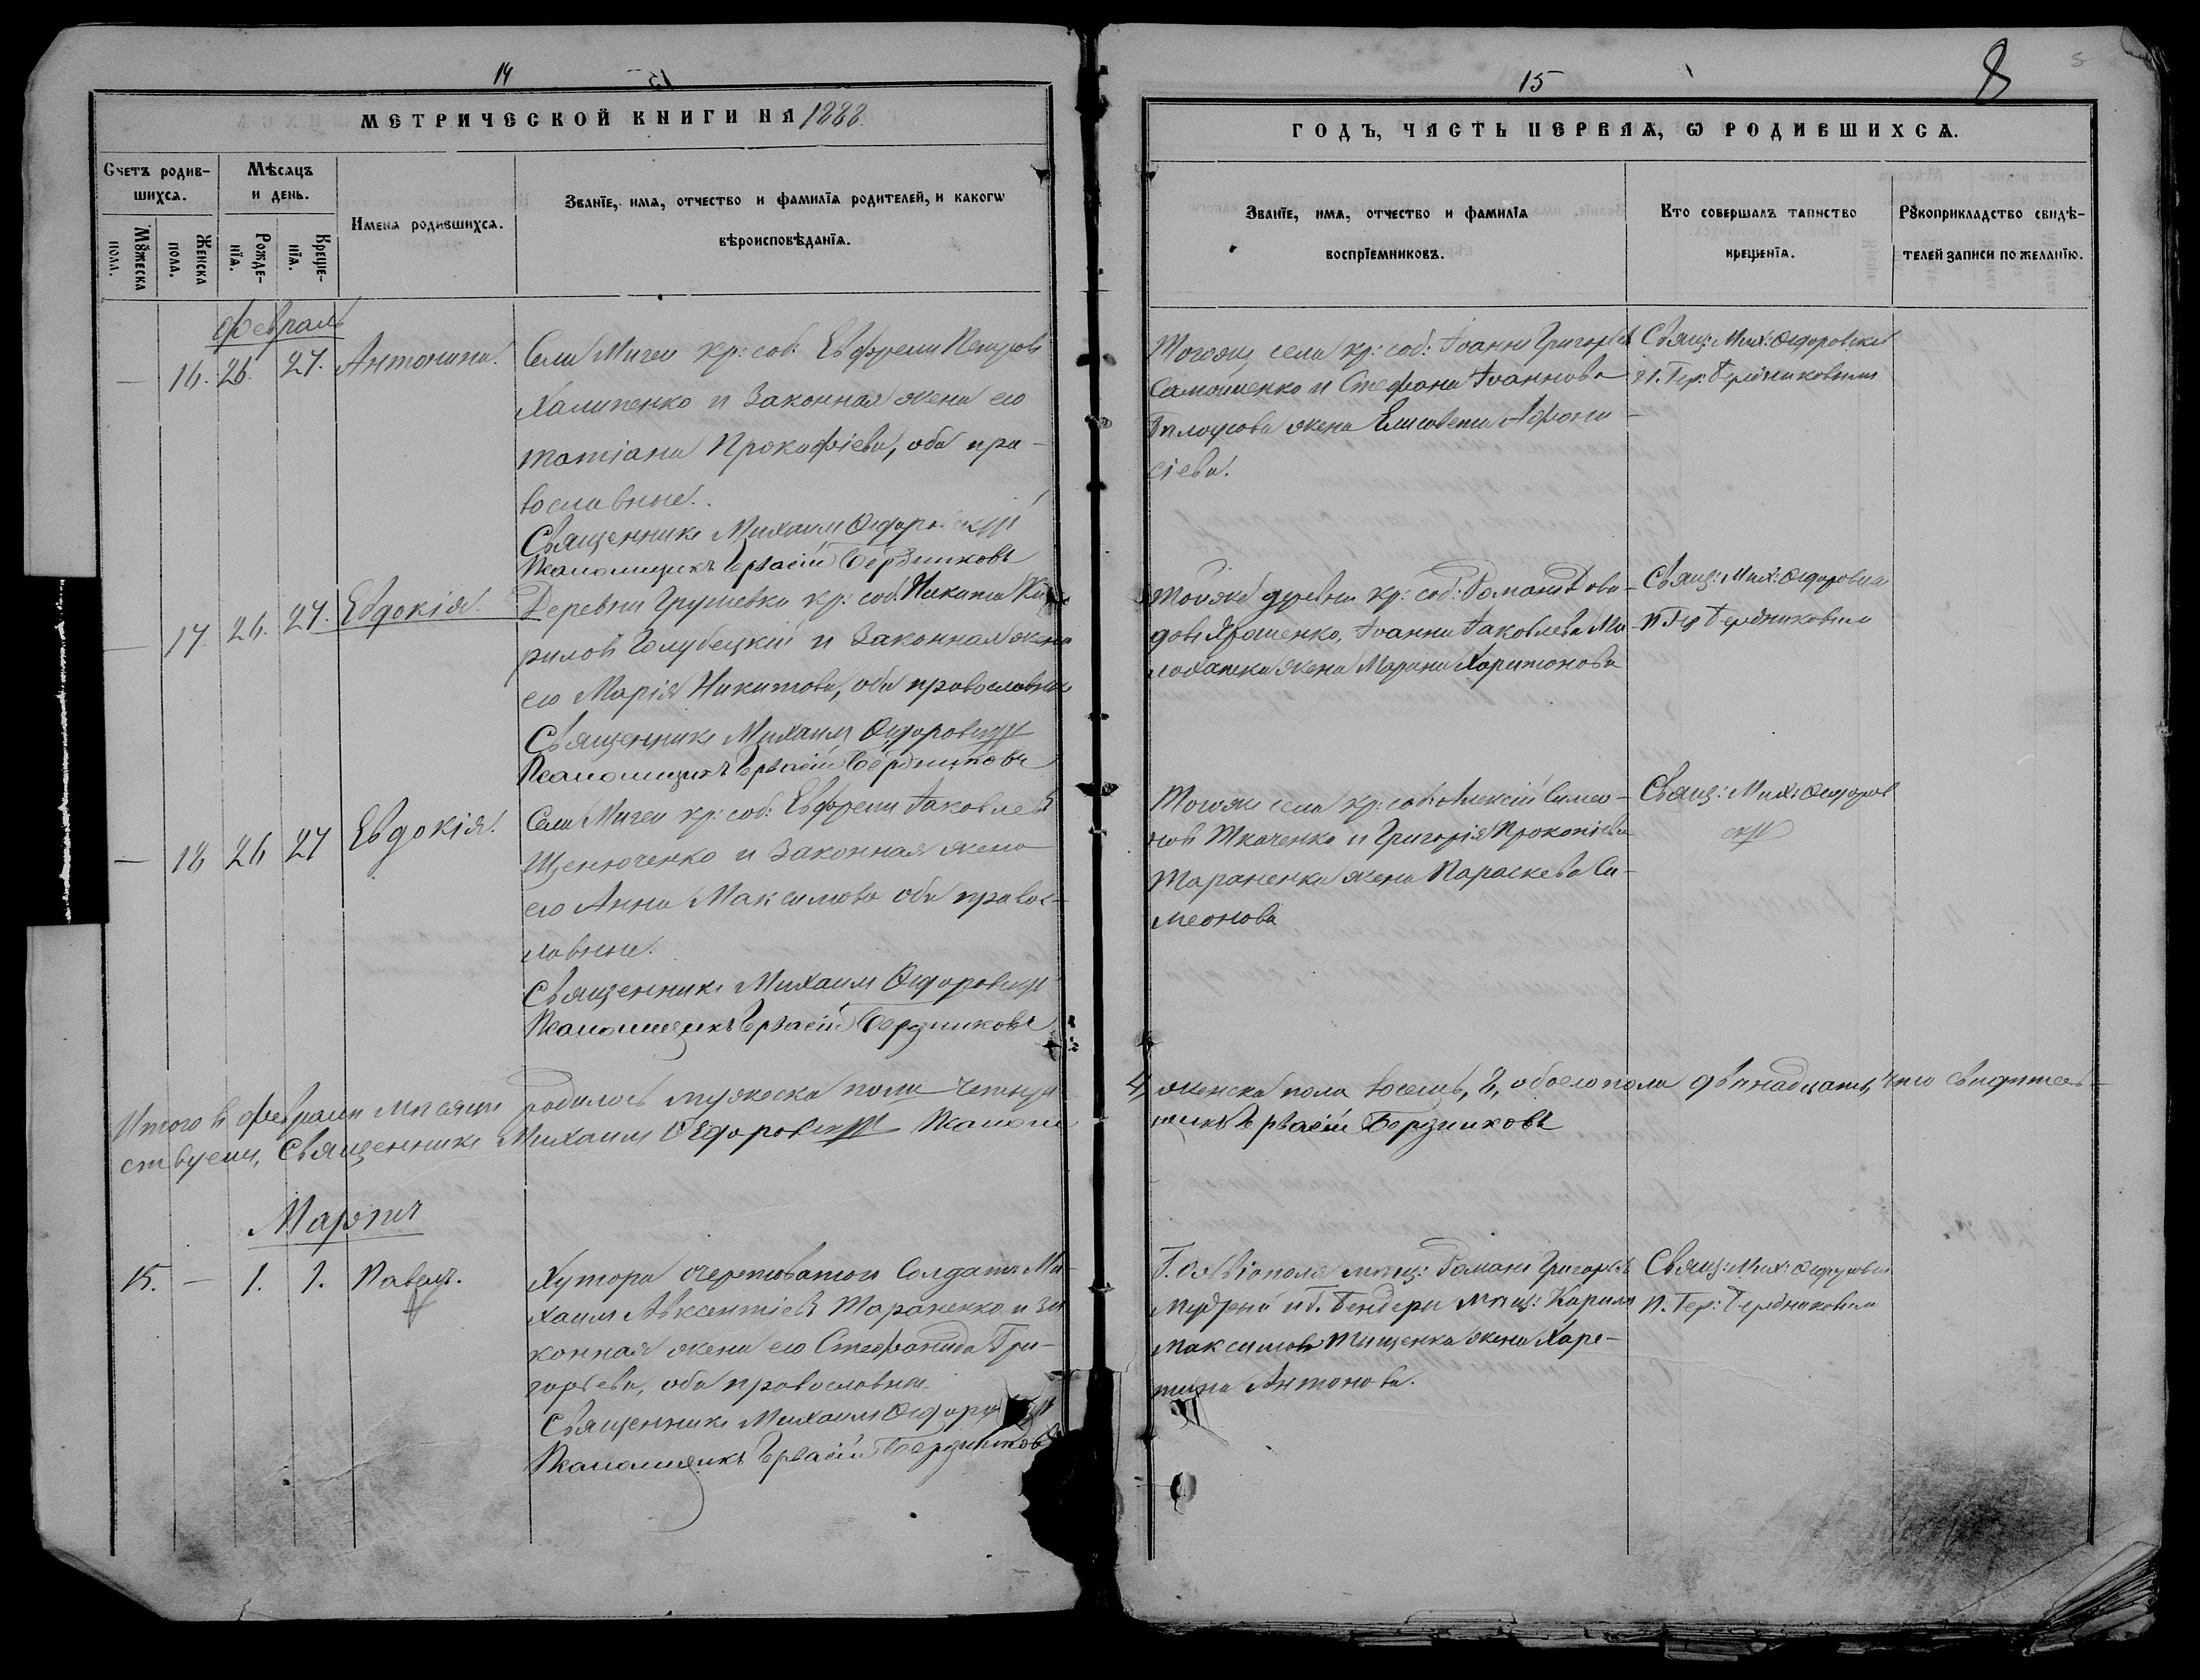 14
15
15
8
МЕТРИЧЕСКОЙ КНИГИ НА 1888.
ГОДЪ, ЧАСТЬ ПЕРВАѦ, Ѡ РОДИВШИХСѦ.
Счетъ родив-
шихсѧ.
Мѣсѧцъ
и день.
Имена родившихсѧ.
Званїе, имѧ, отчество и фамилїѧ родителей, и какогѡ
вѣроисповѣданїѧ.
Мꙋжеска
пола.
Женска
пола.
Рожде-
нїѧ.
Креще-
нїѧ.
Званїе, имѧ, отчество и фамилїѧ
воспрїемниковъ.
Кто совершалъ таинство
крещенїѧ.
Рꙋкоприкладство свидѣ-
телей записи по желанїю.
Февраль
— 16. 26. 27. Антонина.
Села Мигеи кр: соб: Евфремъ Петровъ
Халипенко и законная жена его
Татіана Прокофіева, оба пра-
вославные.
Священникъ Михаилъ Ѳедоровскій
Псаломщикъ Ервасій Березниковъ
Тогожъ села кр: соб: Іоаннъ Григорьев
Самойленко и Стефана Іоаннова
жена Елисавета Афана-
сіева.
Свящ: Мих: Ѳедоровскій
— 17. 26. 27. Евдокія.
Деревни Грушевки кр: соб. Никита Ки-
риловъ Голубецкій и законная жена
его Марія Никитова, оба православные
Священникъ Михаилъ Ѳедоровскій
Псаломщикъ Ервасій Березниковъ
Тойже деревни кр: соб: Романъ Дави-
довъ Ярошенко, Іоанна Іаковлева Ма-
лохатка жена Марина Харитонова
Свящ: Мих: Ѳедоровскій
— 18 26 27 Евдокія.
Села Мигеи кр: соб: Евфремъ Іаковлевъ
Щенюченко и законная жена
его Анна Максимова оба правос-
лавные.
Священникъ Михаилъ Ѳедоровскій
Псаломщикъ Ервасій Березниковъ
Тогоже села кр: соб: Алексій Симео-
новъ Ткаченко и Григорія Прокопіева
Тараненка жена Параскева Си-
меонова
Свящ: Мих: Ѳедоров
скій
Итого въ февралѣ мѣсяцѣ родилось мужеска пола четыре 4, женска пола восемь, 8, обоего пола двѣнадцать, что свидѣтель-
ствуемъ, Священникъ Михаилъ Ѳедоровскій Псалом щикъ Ервасій Березниковъ
Мартъ
15. — 1. 1. Павелъ.
Хутора Очеретоватои Солдатъ Ми-
хаилъ Авксентіевъ Тараненко и за
конная жена его Стефанида Гри-
горьева, оба православные.
Священникъ Михаилъ Ѳедоровскій
Псаломщикъ Ервасій Березниковъ
Г. Ольвіополя мѣщ: Романъ Григорьевъ
Мудрый и г. Бендеръ мѣщ: Кирила
Максимова Тищенка жена Харе-
тина Антонова.
Свящ: Мих: Ѳедоровскій